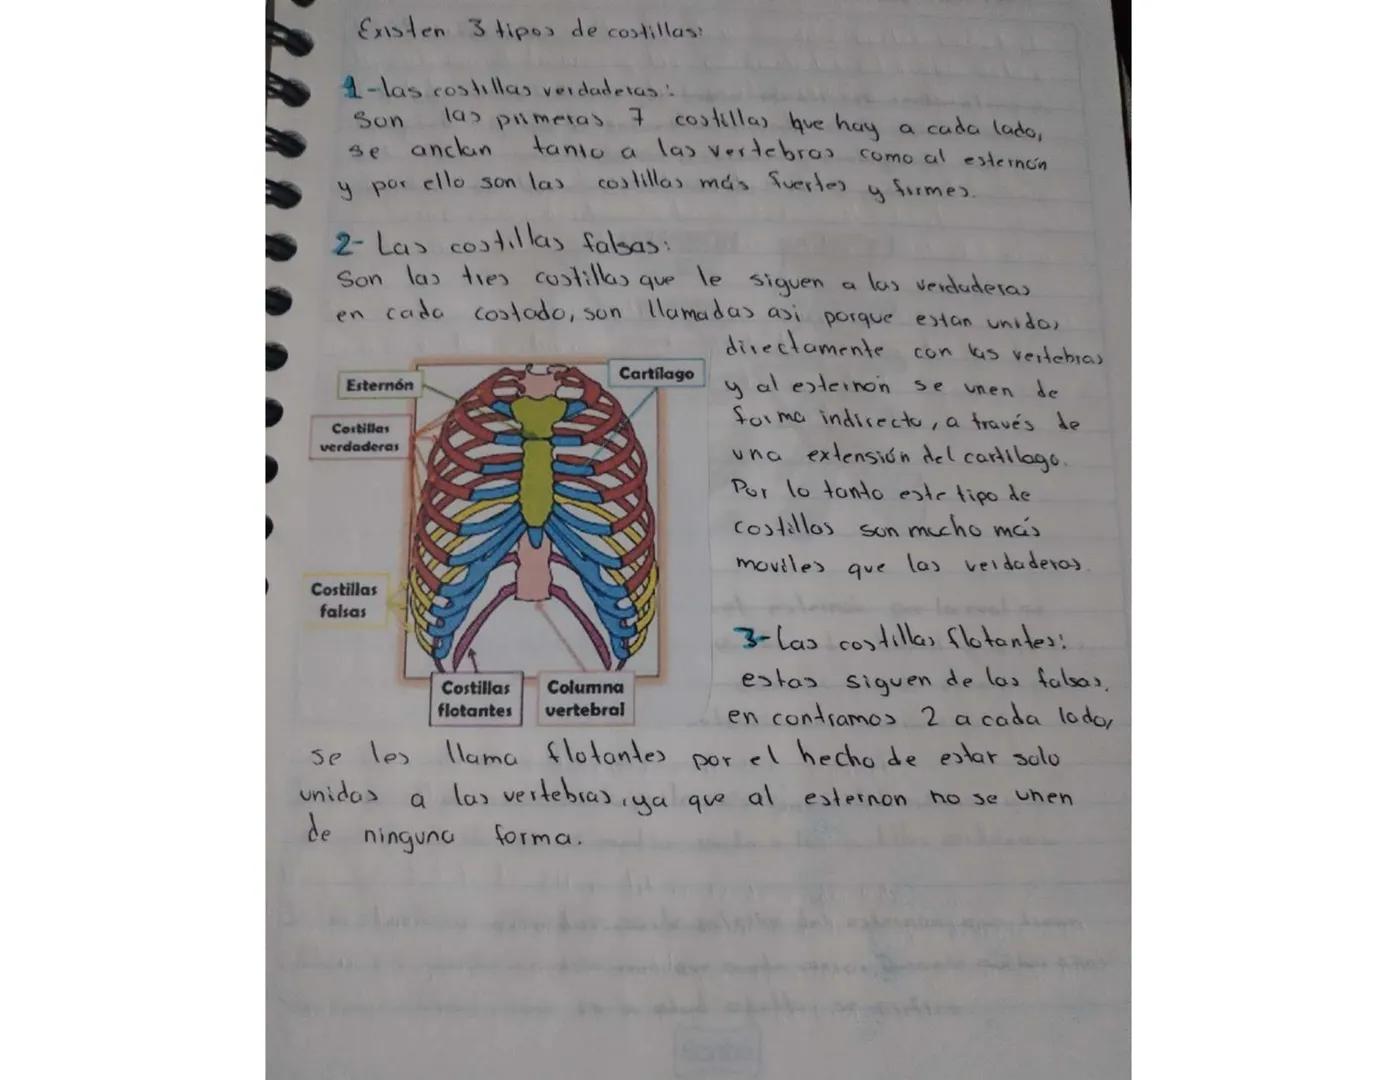 Existen 3 tipos de costillas:
1-las costillas verdaderas:
Son las primeras 7 costillas que hay a cada lado,
se anclan tanto a las vertebras como al esternón
y por ello son las costillas más fuertes y firmes.
2- Las costillas falsas:
Son las tres costillas que le siguen a las verdaderas
en cada costado, son llamadas asi porque estan unidas
directamente con las vertebras
y al esternón se unen de
forma indirecta, a través de
una extensión del cartilago.
Por lo tanto este tipo de
costillas son mucho más
moviles que las verdaderas.
Esternón
Cartílago
Costillas
verdaderas
Costillas
falsas
Costillas
flotantes
Columna
vertebral
3-Las costillas flotantes:
estas siguen de las falsas,
en contramos 2 a cada lado,
se les llama flotantes por el hecho de estar solo
unidas a las vertebras, ya que al esternon no se unen
de ninguna forma.